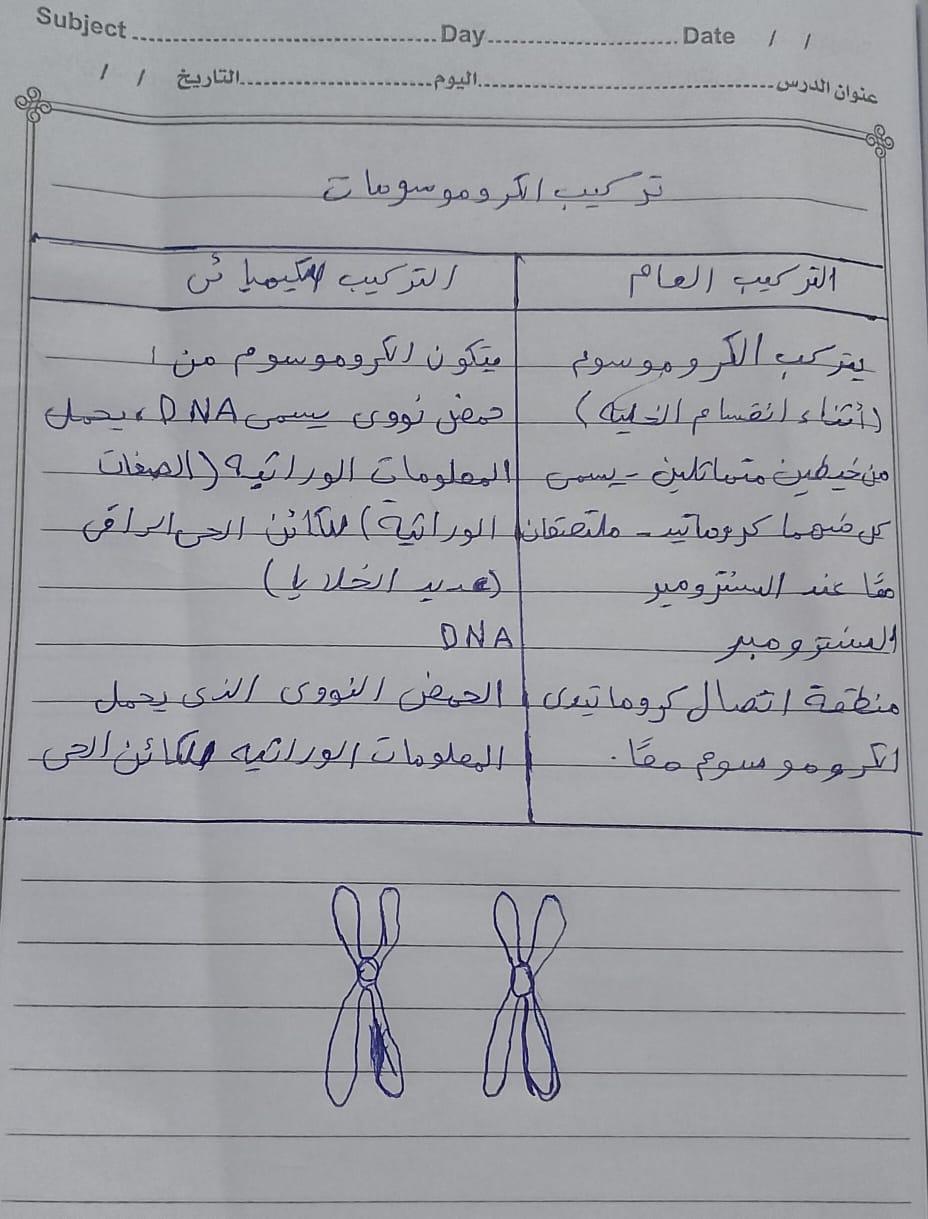 Subject ........ Day ........ Date / /
عنوان الدرس ........ اليوم ........ التاريخ / /
تركيب الكروموسومات
التركيب العام
يتركب الكروموسوم
(أثناء انقسام الخلية)
من خيطين متماثلين - يسمى
كل منهما كروماتيد - ملتصقان
معًا عند السنترومير
السنترومير
منطقة اتصال كروماتيدى
الكروموسوم معًا.
التركيب الكيميائى
يتكون الكروموسوم من ا
حمض نووى يسمى DNA، يحمل
المعلومات الوراثية (الصفات
الوراثية) للكائن الحى الراقى
(عديد الخلايا)
DNA
الحمض النووى الذى يحمل
المعلومات الوراثيه للكائن الحى